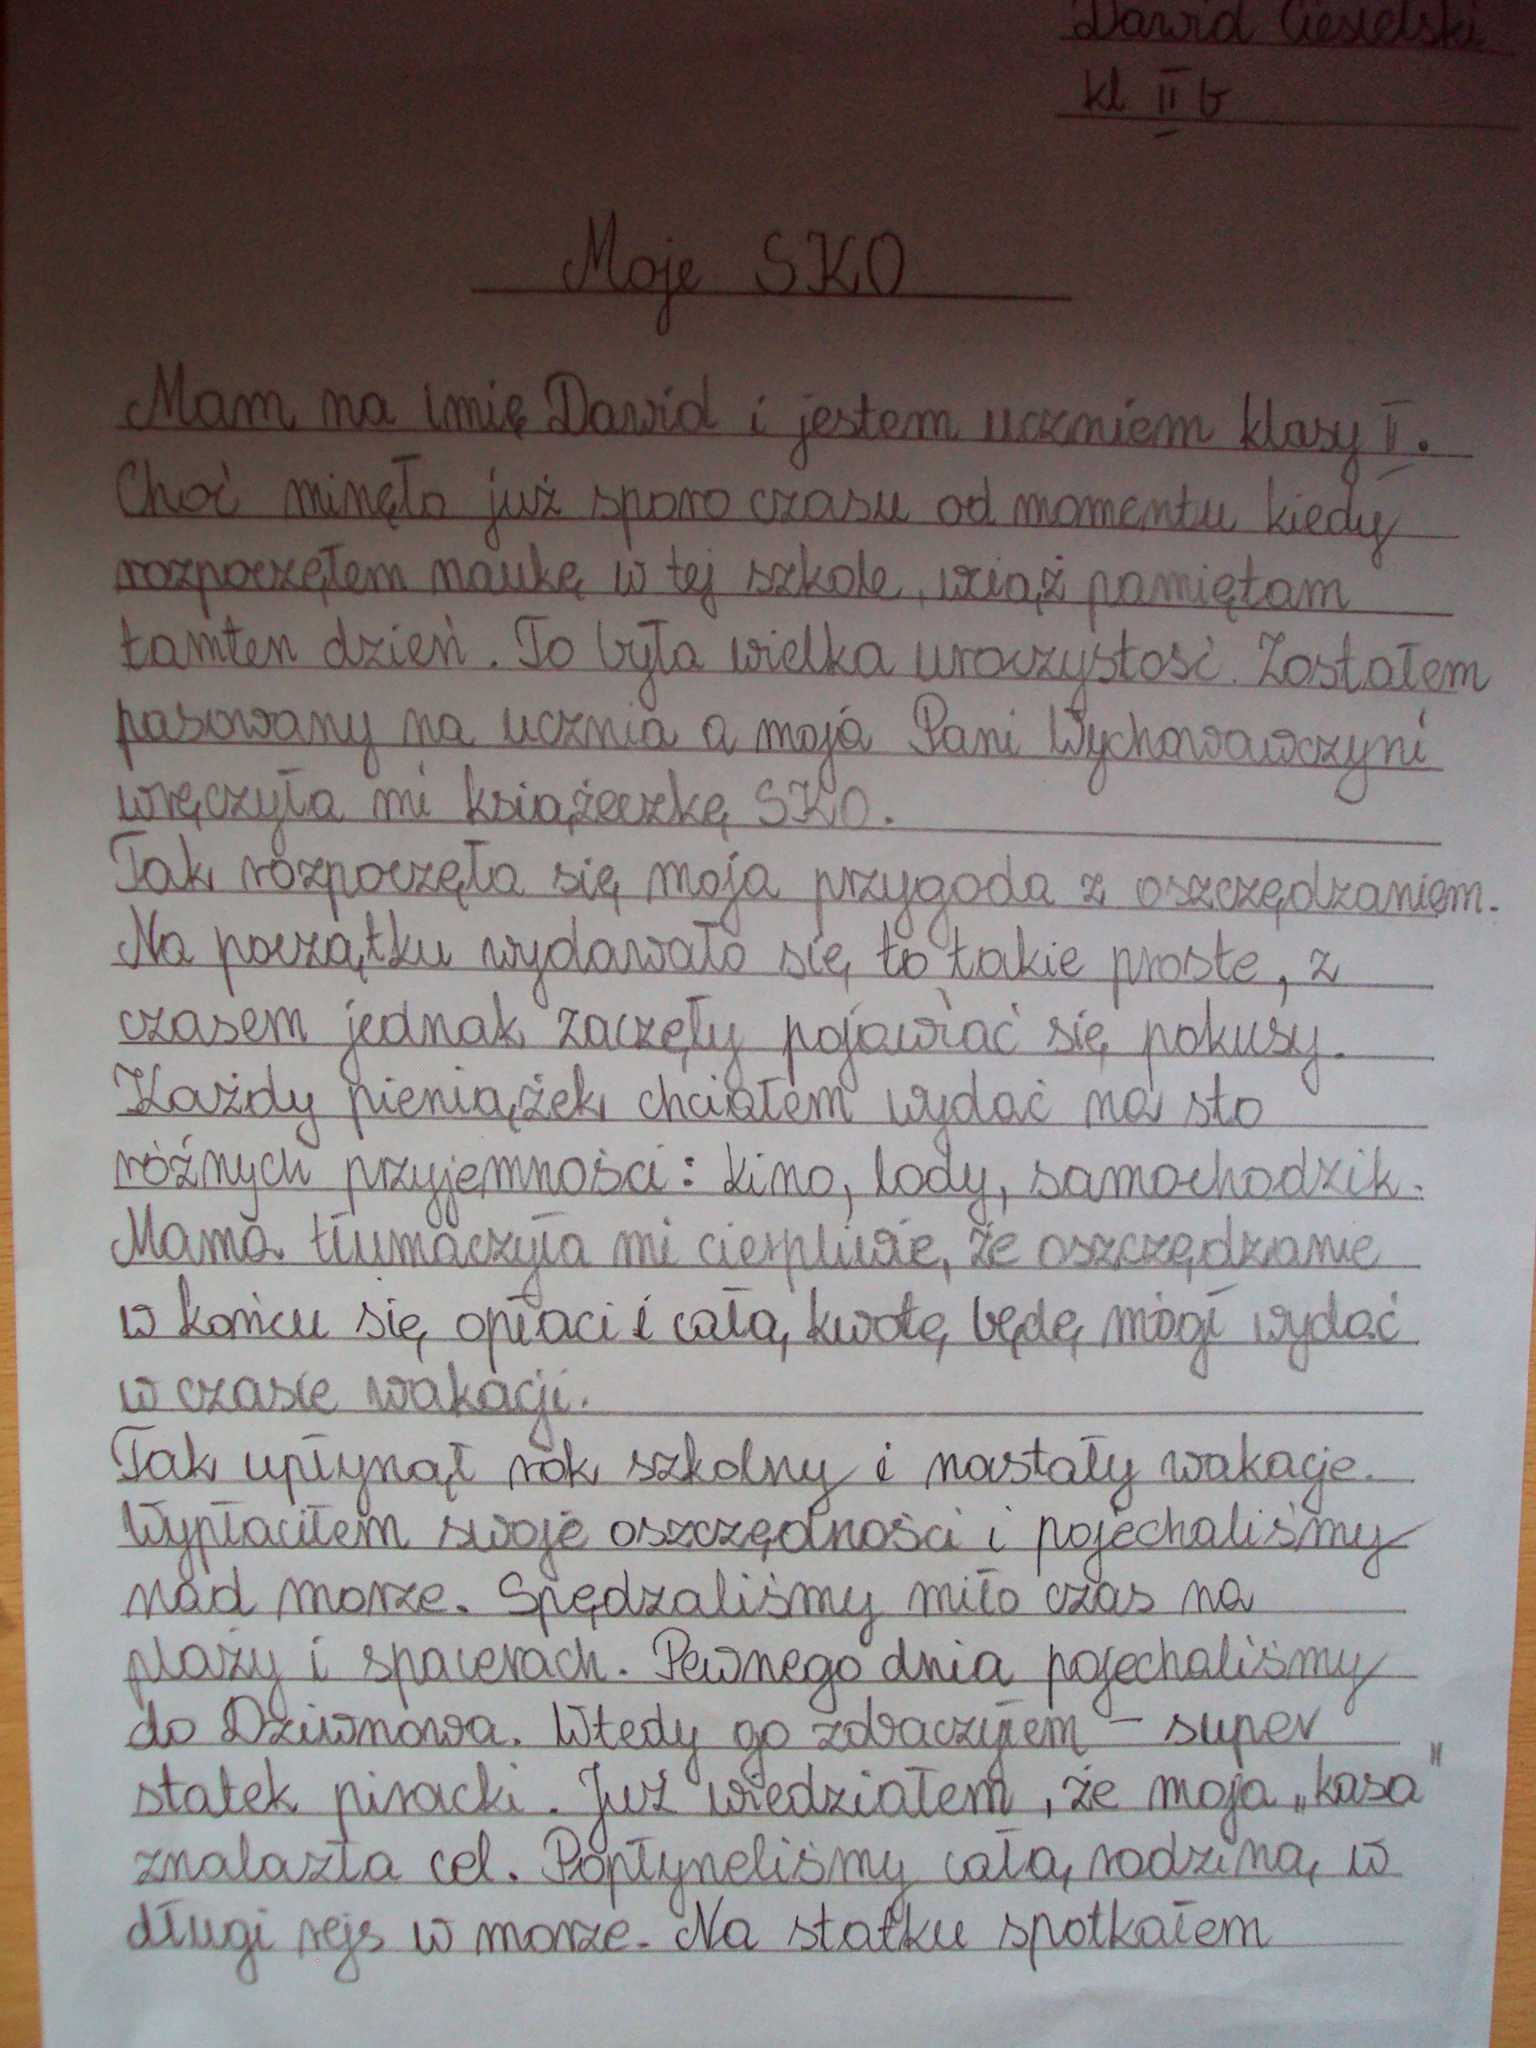 Dawid Ciesielski
kl II b
Moje SKO
Mam na imię Dawid i jestem uczniem klasy II.
Choć minęło już sporo czasu od momentu kiedy
rozpocząłem naukę w tej szkole, wciąż pamiętam
tamten dzień. To była wielka uroczystość. Zostałem
pasowany na ucznia a moja Pani Wychowawczyni
wręczyła mi książeczkę SKO.
Tak rozpoczęła się moja przygoda z oszczędzaniem.
Na początku wydawało się to takie proste, z
czasem jednak zaczęły pojawiać się pokusy.
Każdy pieniążek chciałem wydać na sto
różnych przyjemności: kino, lody, samochodzik.
Mama tłumaczyła mi cierpliwie, że oszczędzanie
w końcu się opłaci i całą kwotę będę mógł wydać
w czasie wakacji.
Tak upłynął rok szkolny i nastały wakacje.
Wypłaciłem swoje oszczędności i pojechaliśmy
nad morze. Spędzaliśmy miło czas na
plaży i spacerach. Pewnego dnia pojechaliśmy
do Dziwnowa. Wtedy go zobaczyłem – super
statek piracki. Już wiedziałem, że moja „kasa”
znalazła cel. Popłyneliśmy całą rodziną w
długi rejs w morze. Na statku spotkałem